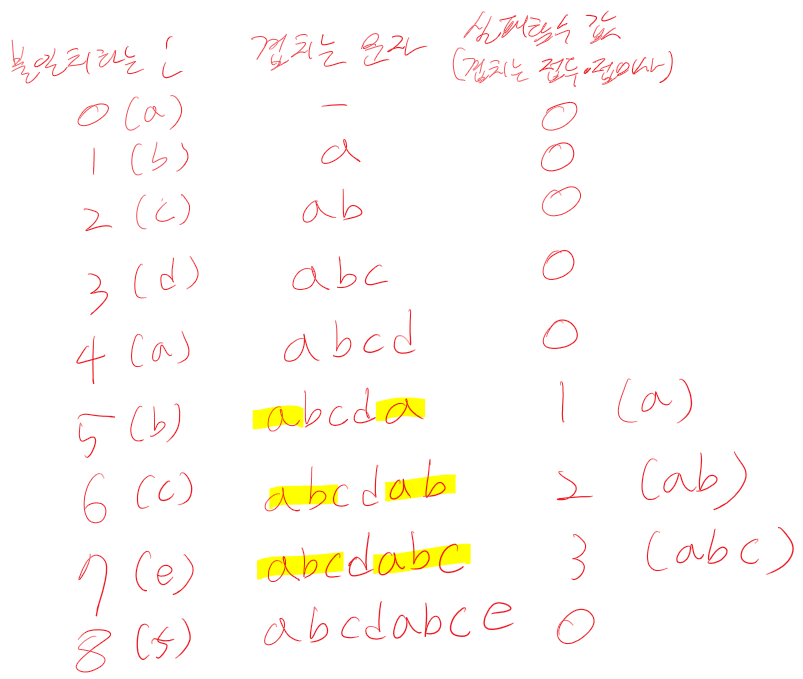 불일치하는 i 겹치는 문자 실패함수 값
(겹치는 접두·접미사)
0 (a) - 0
1 (b) a 0
2 (c) ab 0
3 (d) abc 0
4 (a) abcd 0
5 (b) abcda 1 (a)
6 (c) abcdab 2 (ab)
7 (e) abcdabc 3 (abc)
8 abcdabce 0